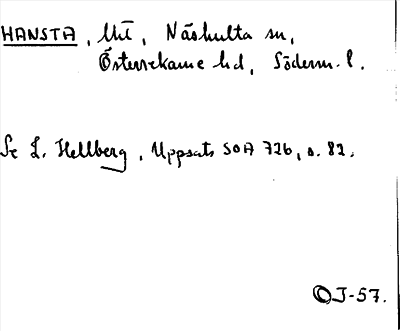 HANSTA, Näshulta sn,
Österrekarne hd, Söderm. l.
Se L. Hellberg, Uppsats SOA 726, s. 82.
OJ-57.